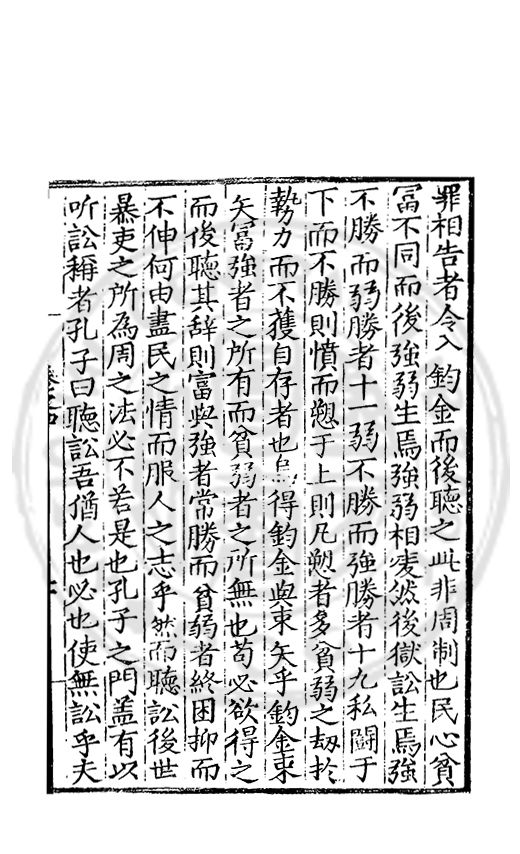 罪相告者令入鈞金而後聽之此非周制也民心貧
富不同而後強弱生焉強弱相凌然後獄訟生焉強
不勝而弱勝者十一弱不勝而強勝者十九私鬬于
下而不勝則憤而愬于上則凡愬者多貧弱之劫於
勢力而不獲自存者也烏得鈞金與束矢乎鈞金束
矢冨強者之所有而貧弱者之所無也苟必欲得之
而後聽其辞則富與強者常勝而貧弱者終困抑而
不伸何由盡民之情而服人之志乎然而聽訟後世
暴吏之所為周之法必不若是也孔子之門盖有以
听訟稱者孔子曰聽訟吾猶人也必也使無訟乎夫